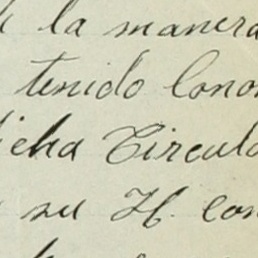 la manera
tenido cono
icha Circula
su H. con